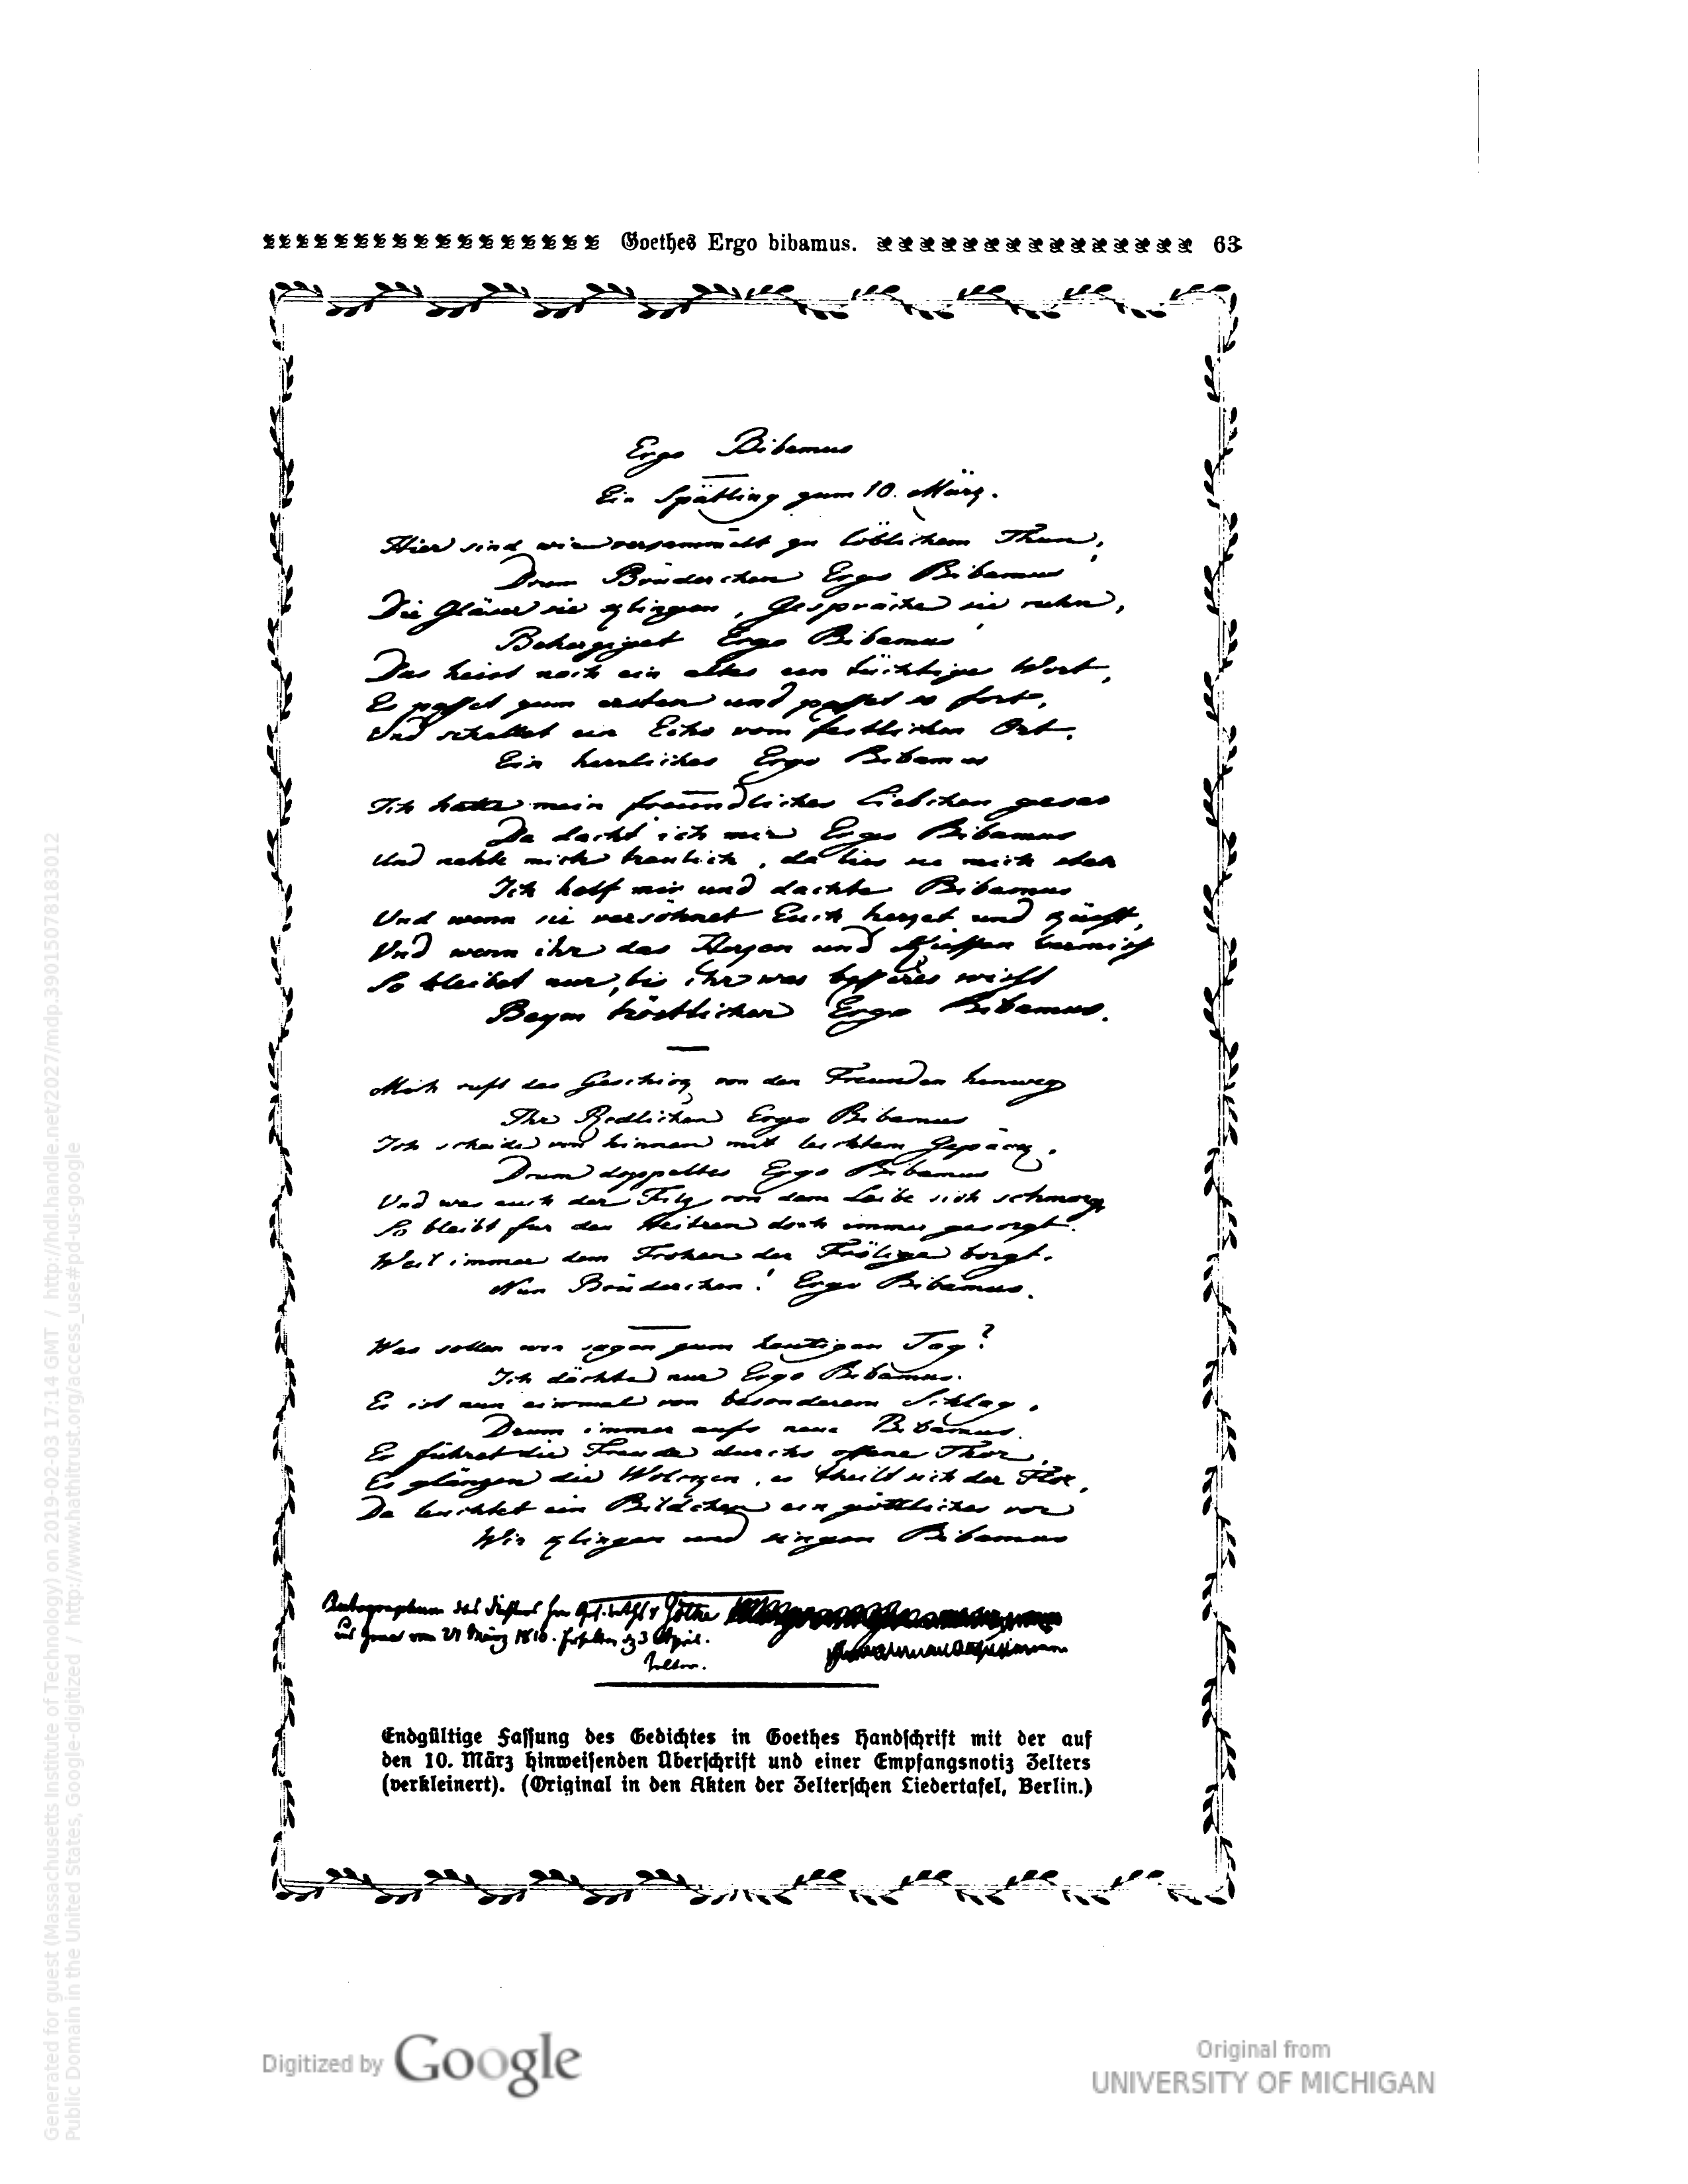 Goethes Ergo bibamus. 63
Ergo Bibamus
Ein Spätling zum 10. März.
Hier sind wir versammelt zu löblichem Thun,
Drum Brüderchen Ergo Bibamus
Die Gläser sie klingen, Gespräche sie ruhn,
Beherziget Ergo Bibamus
Das heist noch ein altes ein tüchtiges Wort,
Es passet zum ersten und passet so fort,
Und schallet ein Echo vom festlichen Ort,
Ein herrliches Ergo Bibamus
Ich hatte mein freundliches Liebchen gesen
Da dacht ich mir Ergo Bibamus
Und nahte mich traulich, da lies sie mich stehn
Ich half mir und dachte Bibamus
Und wenn sie versöhnet Euch herzet und küsst,
Und wenn ihr das Herzen und Küssen vermisst
So bleibet nur, bis ihr was besseres wisst
Beym tröstlichen Ergo Bibamus.
Mich ruft das Geschick von den Freunden hinweg
Ihr Redlichen Ergo Bibamus
Ich scheide von hinnen mit leichtem Gepäck.
Drum doppeltes Ergo Bibamus
Und was auch der Filz von dem Leibe sich schmorgt
So bleibt für den Heitren doch immer gesorgt.
Weil immer dem Frohen der Fröliche borgt.
Nun Brüderchen! Ergo Bibamus.
Was sollen wir sagen zum heutigen Tag?
Ich dächte nur Ergo Bibamus.
Er ist nun einmal von besonderem Schlag,
Drum immer aufs neue Bibamus.
Er führet die Freude durchs offne Thor,
Es glänzen die Wolcken, es theilt sich der Flor,
Da leuchtet ein Bildchen ein göttliches vor
Wir klingen und singen Bibamus
Autographum des Göthe
vom 21 März 1810. 3 April.
Zelter.
Endgültige Fassung des Gedichtes in Goethes Handschrift mit der auf
den 10. März hinweisenden Überschrift und einer Empfangsnotiz Zelters
(verkleinert). (Original in den Akten der Zelterschen Liedertafel, Berlin.)
Digitized by Google
Original from
UNIVERSITY OF MICHIGAN
Generated for guest (Massachusetts Institute of Technology) on 2019-02-03 17:14 GMT / http://hdl.handle.net/2027/mdp.39015078183012
Public Domain in the United States, Google-digitized / http://www.hathitrust.org/access_use#pd-us-google